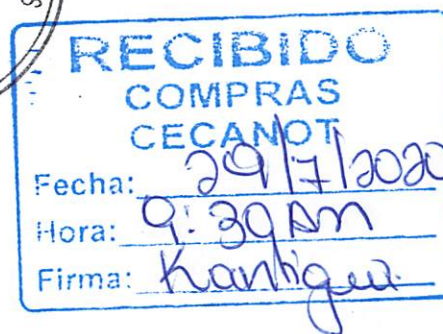 RECIBIDO
COMPRAS
CECANOT
Fecha: 29/7/2020
Hora: 9:39 AM
Firma: